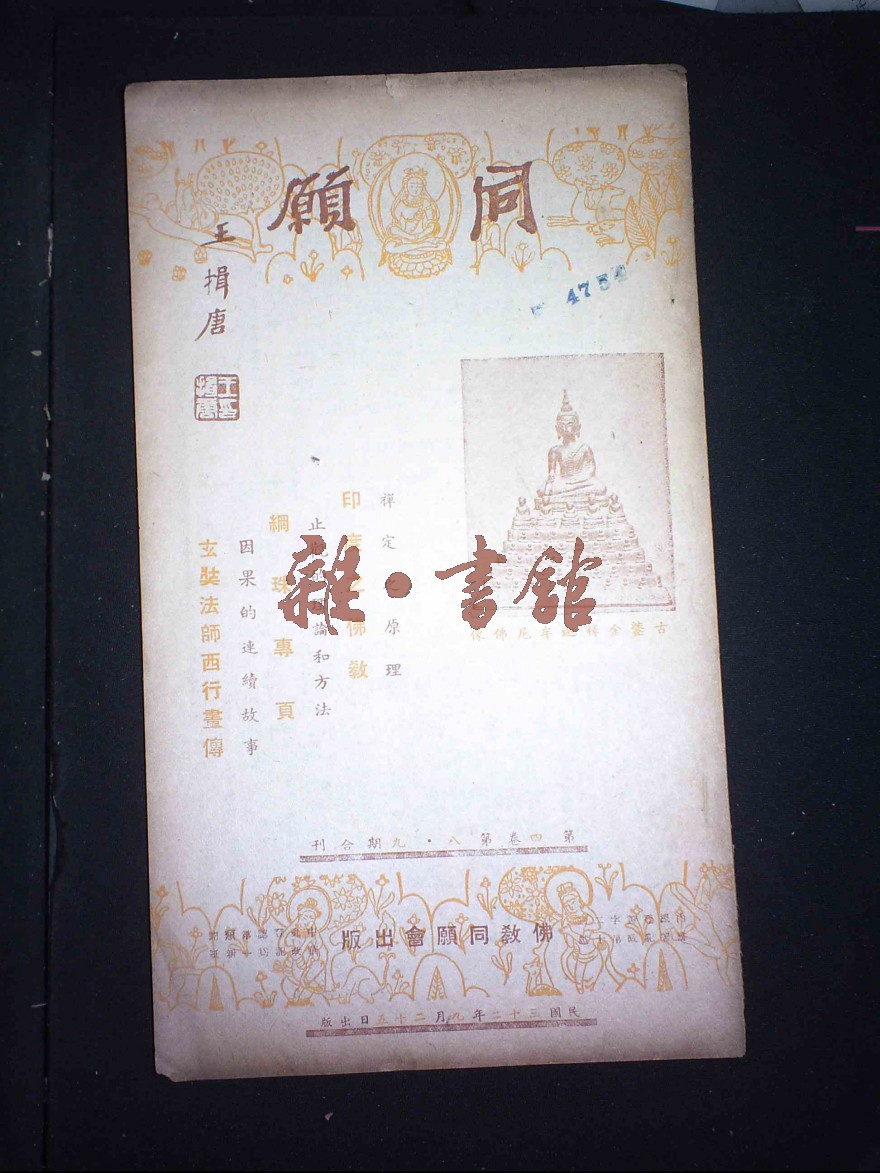 同願
王揖唐
4754
禪定　原理
印度之佛教
止觀的理論和方法
綱珠專頁
因果的連續故事
玄奘法師西行畫傳
雜·書館
第四卷第八·九期合刊
佛教同願會出版
民國三十二年九月二十五日出版